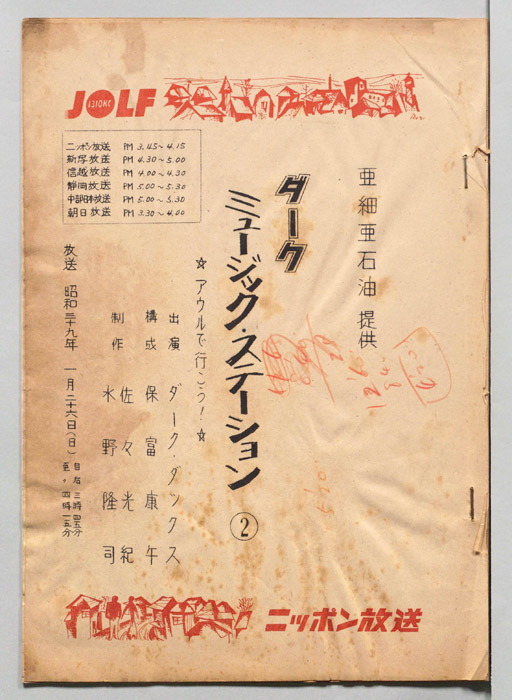 JOLF
1310KC
亜細亜石油 提供
ダーク
ミュージック・ステーション
②
☆アウルで行こう!☆
出演 ダーク・ダックス
構成 保富康午
佐々光紀
制作 水野隆司
放送 昭和三十九年 一月二十六日(日)
自后三時四五分
至〃四時一五分
ニッポン放送 PM 3.45~4.15
新写放送 PM 4.30~5.00
信越放送 PM 4.00~4.30
静岡放送 PM 5.00~5.30
中部日本放送 PM 5.00~5.30
朝日放送 PM 3.30~4.00
ニッポン放送